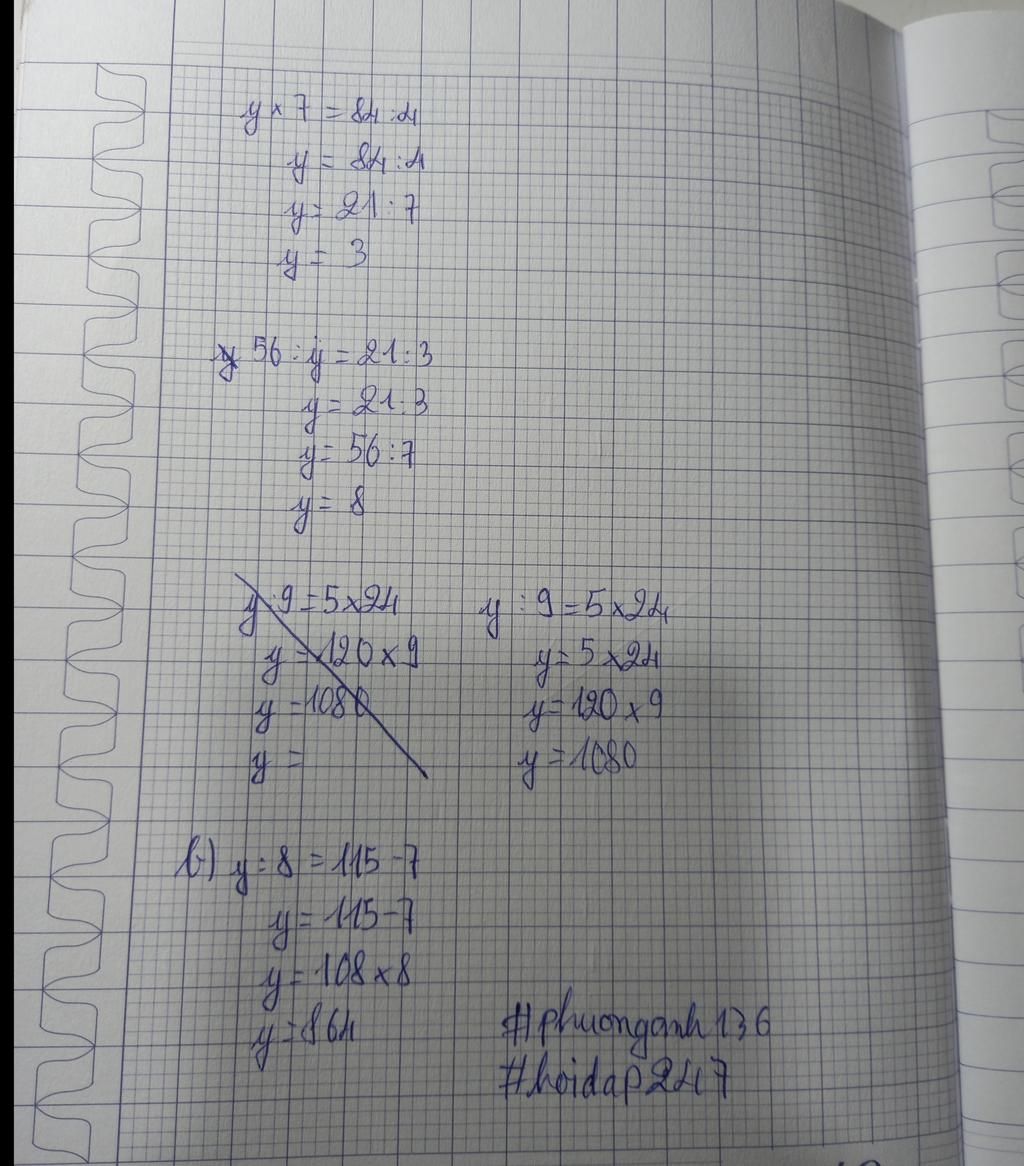 y × 7 = 84 : 4
y = 84 : 4
y = 21 : 7
y = 3
y 56 : y = 21 : 3
y = 21 : 3
y = 56 : 7
y = 8
y : 9 = 5 × 24
y = 120 × 9
y = 1080
y =
y : 9 = 5 × 24
y = 5 × 24
y = 120 × 9
y = 1080
b) y : 8 = 115 - 7
y = 115 - 7
y = 108 × 8
y = 864
#phuonganh136
#hoidap247